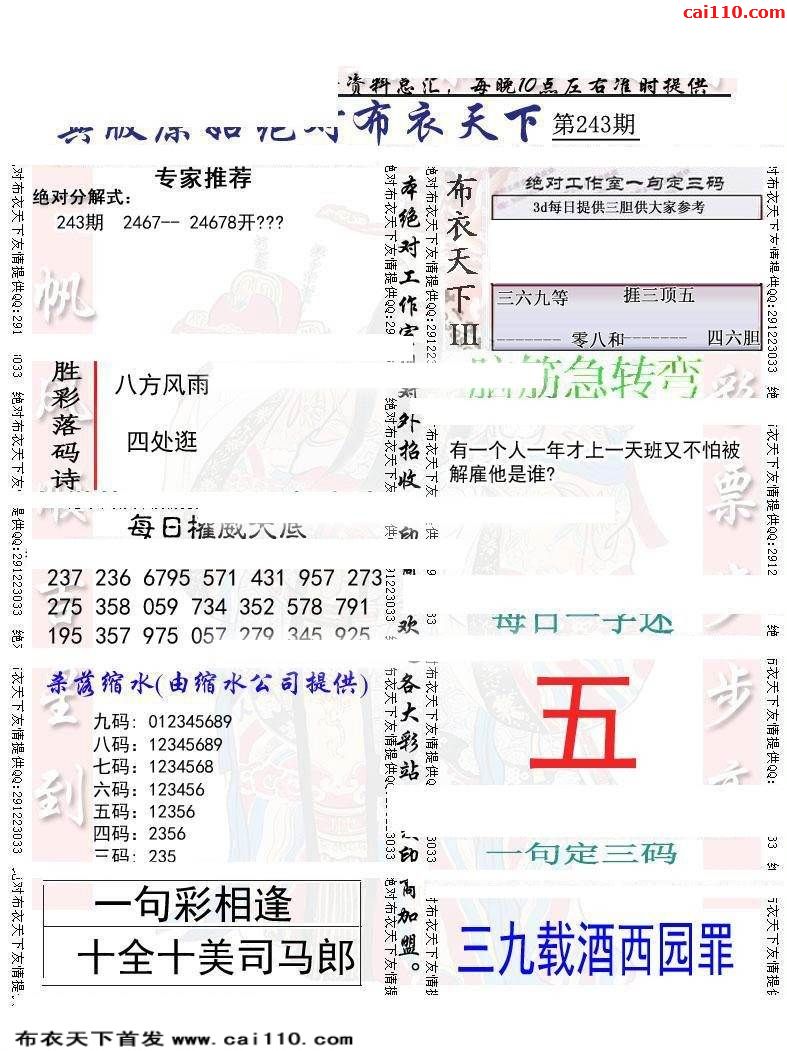 cai110.com
资料总汇，每晚10点左右准时提供
布衣天下 第243期
专家推荐
绝对分解式：
243期 2467-- 24678开???
帆
胜彩落码诗
八方风雨
四处逛
每日
237 236 6795 571 431 957 273
275 358 059 734 352 578 791
195 357 975 057 279 345 925
杀落缩水(由缩水公司提供)
九码: 012345689
八码: 12345689
七码: 1234568
六码: 123456
五码: 12356
四码: 2356
三码: 235
到
一句彩相逢
十全十美司马郎
本绝对工作室
外招收
欢
各大彩站
印
商加盟。
布衣天下III
绝对工作室一句定三码
3d每日提供三胆供大家参考
三六九等 捱三顶五
-------- 零八和------- 四六胆
脑筋急转弯
有一个人一年才上一天班又不怕被
解雇他是谁?
彩票
步步
每日一字迷
五
一句定三码
三九载酒西园罪
对布衣天下友情提供QQ:291223033
布衣天下首发 www.cai110.com